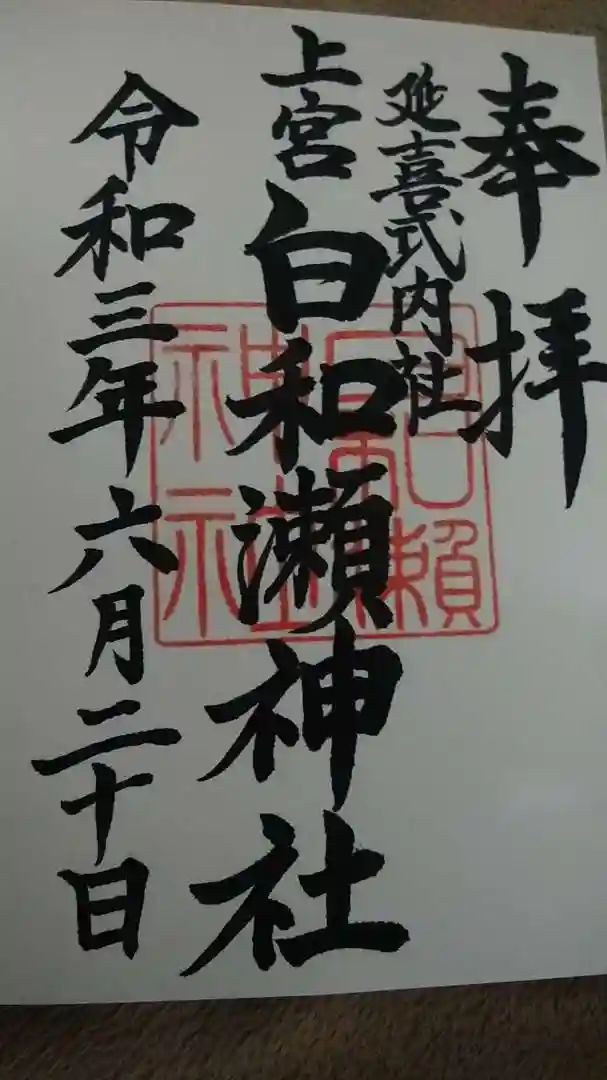 奉拝
延喜式内社
上宮 白和瀬神社
令和三年六月二十日
白和瀬
神社